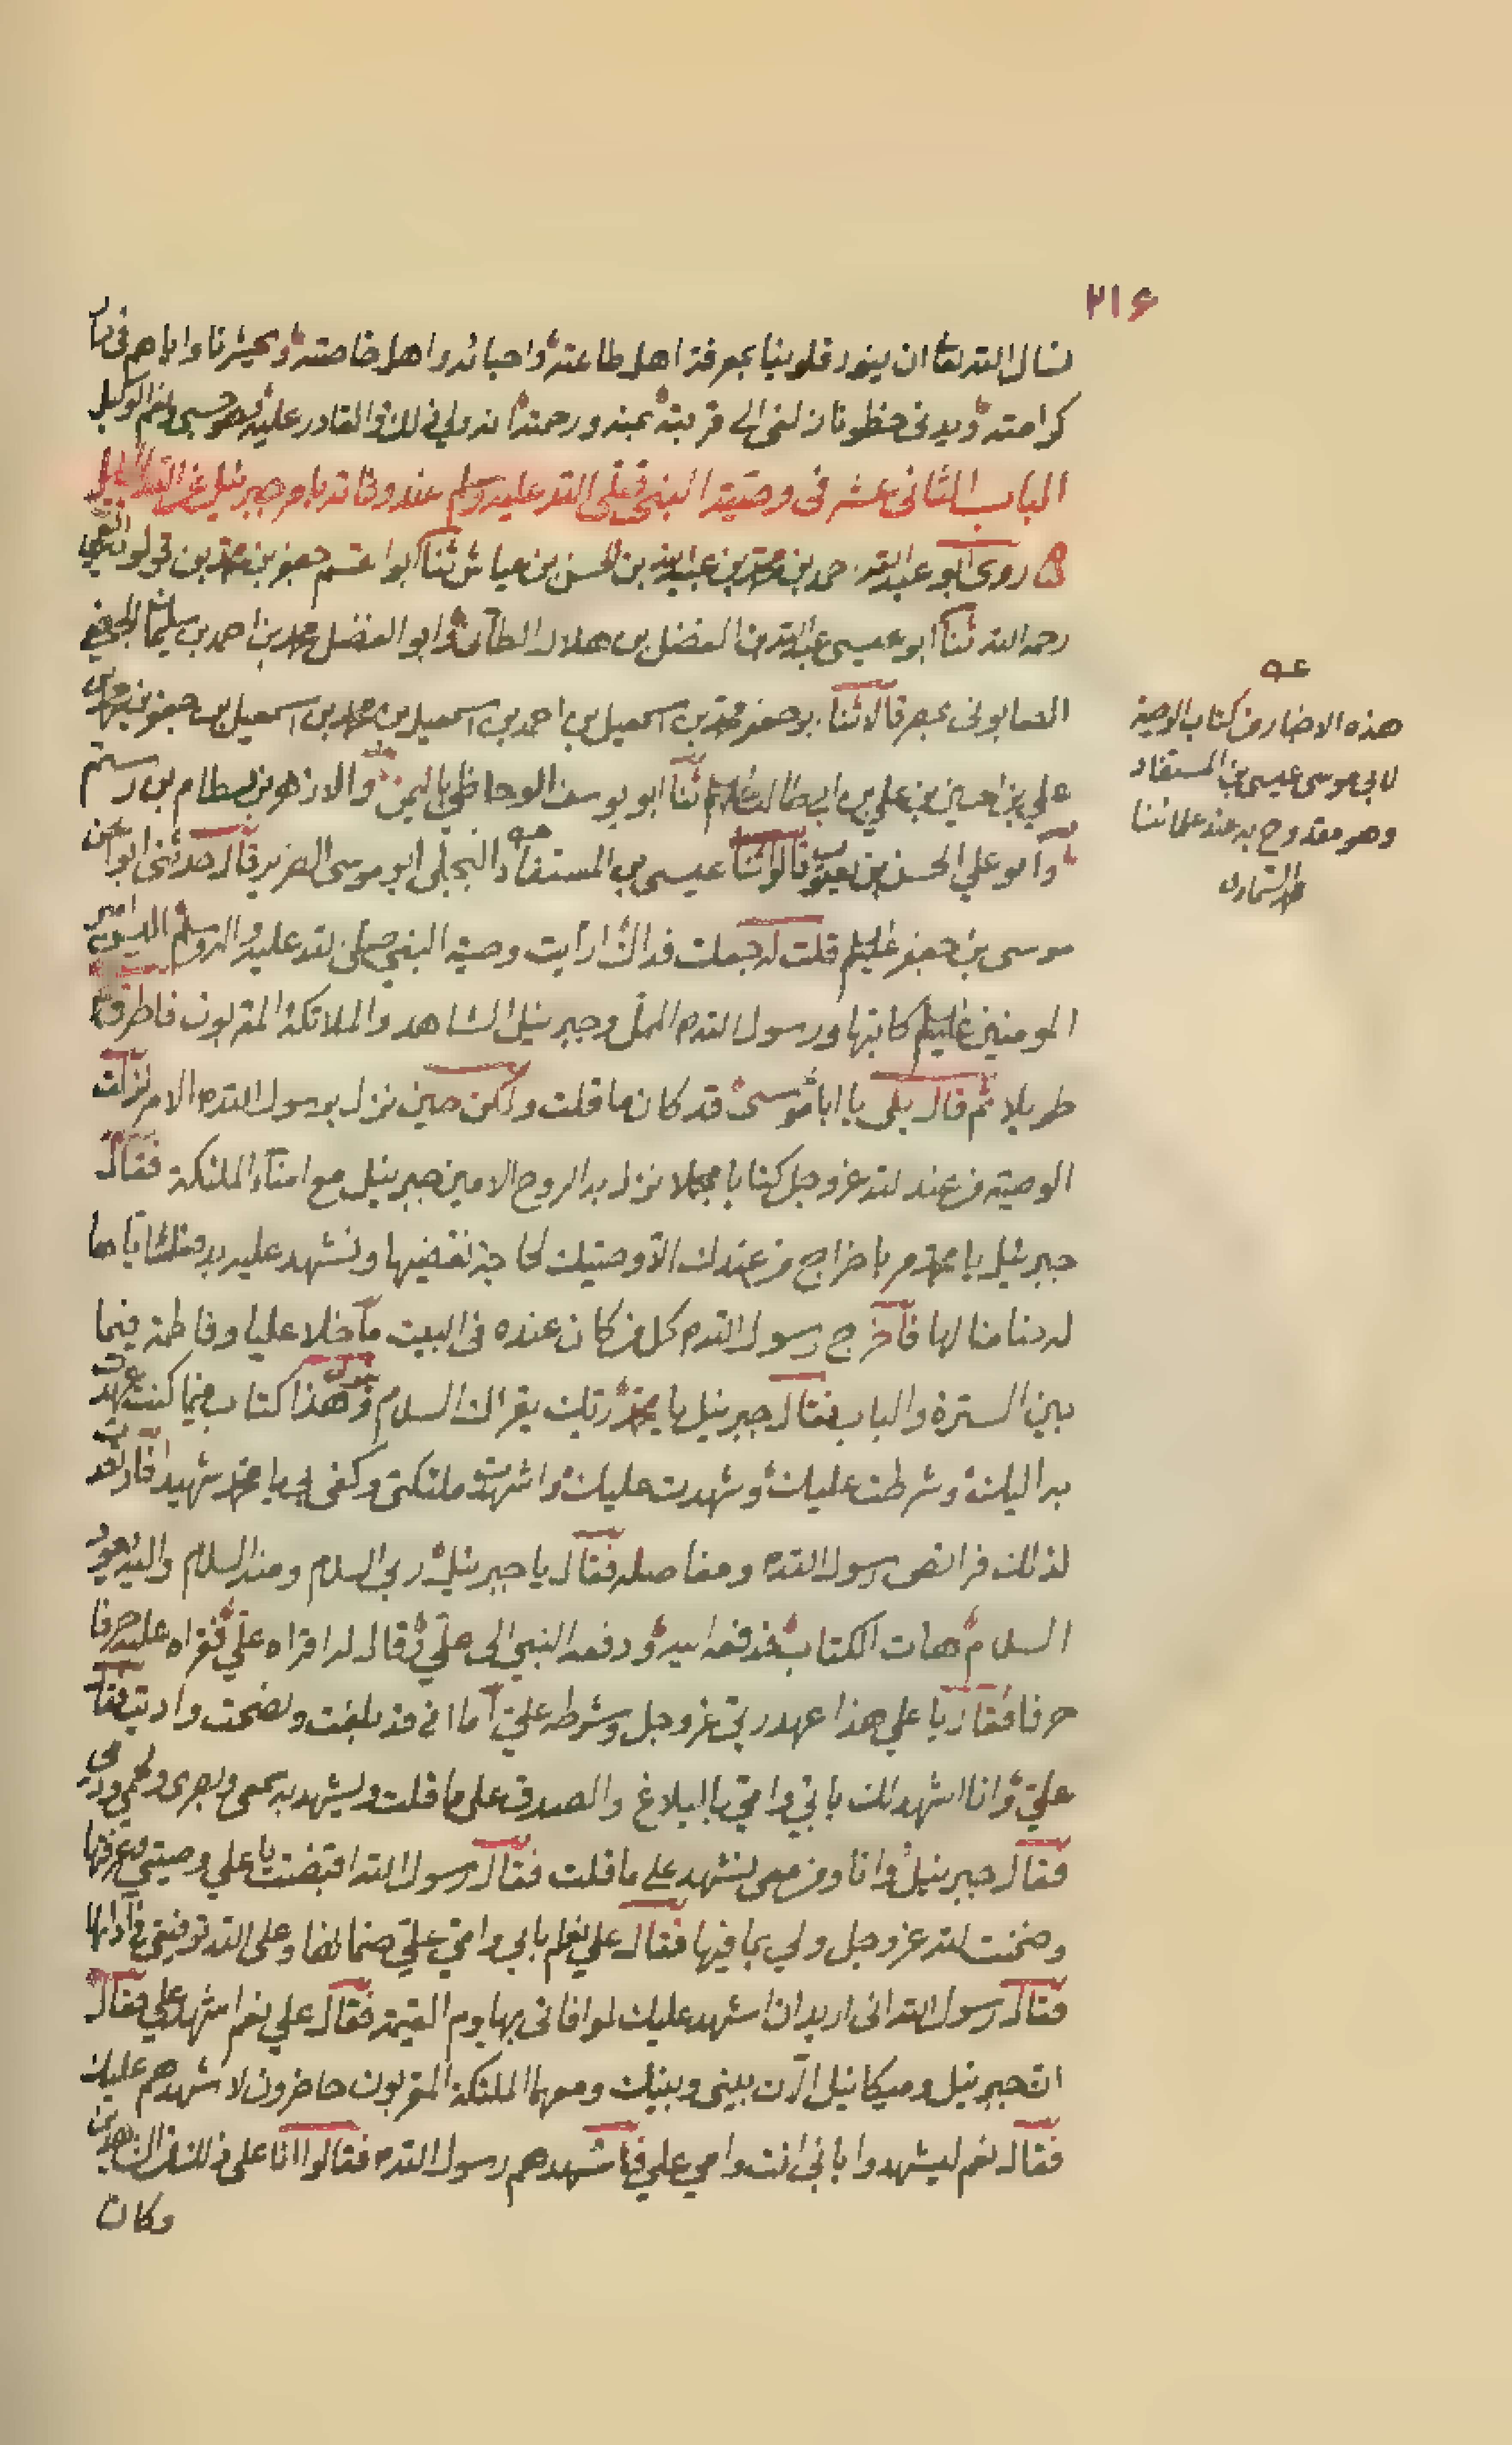 ٢١۶
نسال الله تعا ان ينور قلوبنا بمعرفة اهل طاعته واحبائه واهل خاصته ويحشرنا واياهم في دار
كرامته ويدني حظوظنا زلفى الى قربته بمنه ورحمته انه ولي ذلك والقادر عليه وهو حسبي ونعم الوكيل
الباب الثاني عشر في وصية النبي صلى الله عليه وسلم عند وفاته بامر جبرئيل عن الله الجليل
روى ابو عبد الله احمد بن محمد بن عبيد الله بن الحسن بن عياش ثنا ابو القسم جعفر بن محمد بن قولويه القمي
رحمه الله ثنا ابو عيسى عبيد الله بن الفضل بن هلال الطائي وابو الفضل محمد بن احمد بن سليمان الجعفي
الصابوني بمصر قالا ثنا ابو جعفر محمد بن اسمعيل بن احمد بن اسمعيل بن محمد بن اسمعيل بن جعفر بن محمد بن
علي بن الحسين بن علي بن ابي طالب عليهم ثنا ابو يوسف الوحاظي باليمن والازهر بن بسطام بن رستم
وابو علي الحسن بن يعقوب قالوا ثنا عيسى بن المستفاد البجلي ابو موسى الضرير قال حدثني ابو الحسن
موسى بن جعفر عليهم قلت له جعلت فداك ارايت وصية النبي صلى الله عليه واله وسلم اليس امير
المومنين عليه السلم كاتبها ورسول الله المملي وجبرئيل الشاهد والملائكة المقربون فاطرق
طويلا ثم قال بلى يا ابا موسى قد كان ما قلت ولكن حين نزل برسول الله الامر نزلت
الوصية من عند الله عز وجل كتابا مسجلا نزل به الروح الامين جبرئيل مع امناء الملئكة فقال
جبرئيل يا محمد مر باخراج من عندك الا وصيك لحاجة نقضيها ونشهد عليه بدفعك اياها
له ضامنا لها فاخرج رسول الله كل من كان عنده في البيت ما خلا عليا وفاطمة فيما
بين السترة والباب فقال جبرئيل يا محمد ربك يقرئك السلام ويقول هذا كتاب فيما كنت عهدت
به اليك وشرطت عليك وشهدت عليك واشهدت ملئكتي وكفى بي يا محمد شهيدا فارتعدت
لذلك فرائص رسول الله ومفاصله فقال يا جبرئيل ربي السلام ومنه السلام واليه يعود
السلام هات الكتاب فدفعه اليه ودفعه النبي الى علي وقال له اقراه علي فقراه عليه حرفا
حرفا فقال يا علي هذا عهد ربي عز وجل وشرطه علي اما اني قد بلغت ونصحت واديت فقال
علي وانا اشهد لك بابي وامي بالبلاغ والصدق على ما قلت ويشهد به سمعي وبصري ولحمي ودمي
فقال جبرئيل وانا ومن معي نشهد على ما قلت فقال رسول الله اقتبضت يا علي وصيتي وعرفتها
وضمنت لله عز وجل ولي بما فيها فقال علي نعم بابي وامي علي ضمانها وعلى الله توفيقي في ادائها
فقال رسول الله اني اريد ان اشهد عليك لموافاتي بها يوم القيمة فقال علي نعم اشهد علي فقال
ان جبرئيل وميكائيل الان بيني وبينك ومعهما الملئكة المقربون حاضرون لاشهدهم عليك
فقال نعم ليشهدوا بابي انت وامي علي فاشهدهم رسول الله فقالوا انا على ذلك من الشاهدين
وكان
هذه الاخبار من كتاب الوصية
لابي موسى عيسى بن المستفاد
وهو مقدوح به عند علمائنا